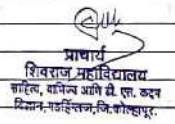 प्राचार्य
शिवराज महाविद्यालय
साहित्य, वाणिज्य आणि डी. एस. कदम
विज्ञान, गडहिंग्लज, जि. कोल्हापूर.